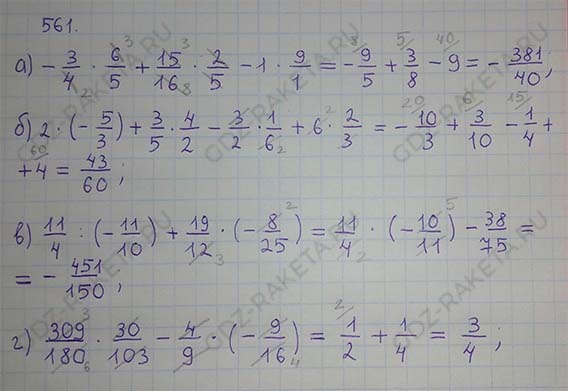 561.
а) - 3/4 · 6/5 + 15/16 · 2/5 - 1 · 9/1 = - 9/5 + 3/8 - 9 = - 381/40;
б) 2 · (- 5/3) + 3/5 · 4/2 - 3/2 · 1/6 + 6 · 2/3 = - 10/3 + 3/10 - 1/4 +
+ 4 = 43/60;
в) 11/4 : (- 11/10) + 19/12 · (- 8/25) = 11/4 · (- 10/11) - 38/75 =
= - 451/150;
г) 309/180 · 30/103 - 4/9 · (- 9/16) = 1/2 + 1/4 = 3/4;
GDZ-RAKETA.RU